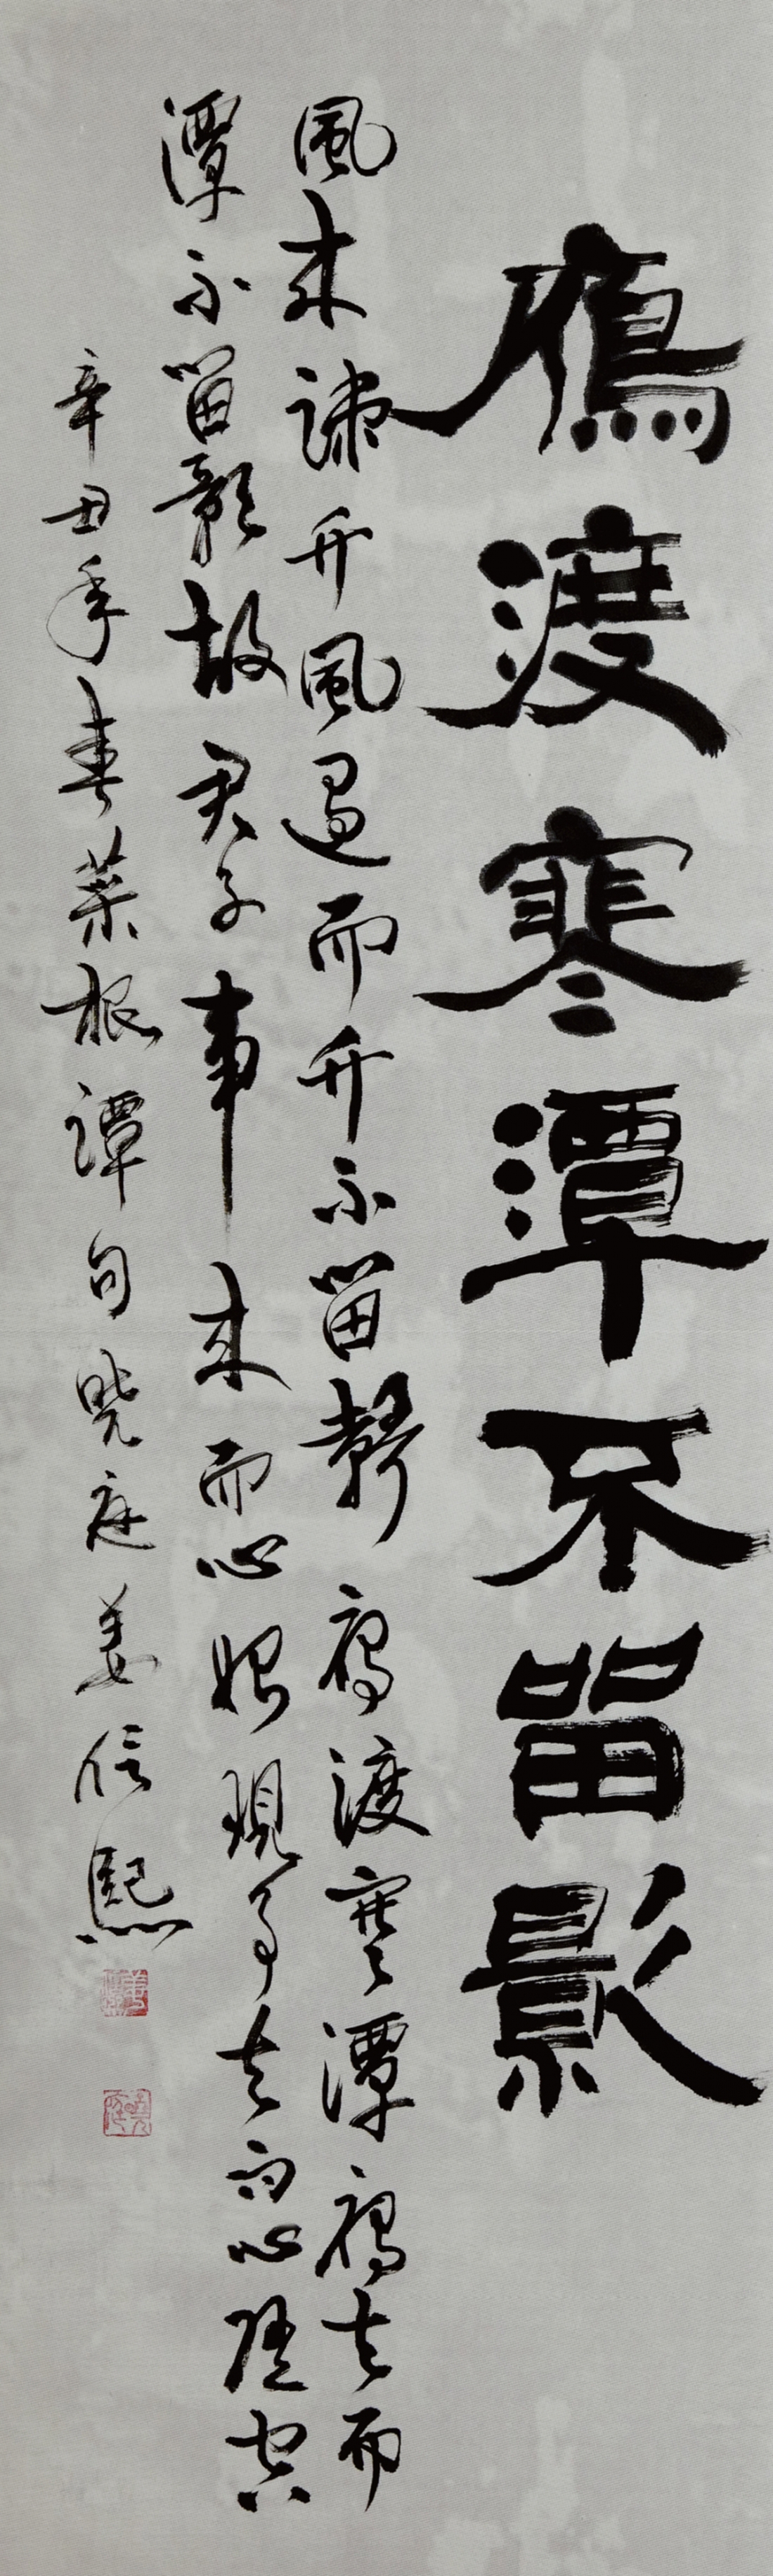 鴈渡寒潭不留影
風來疎竹風過而竹不留聲鴈渡寒潭鴈去而
潭不留影故君子事來而心始現事去而心隨空
辛丑年春菜根譚句曉庭姜信熙